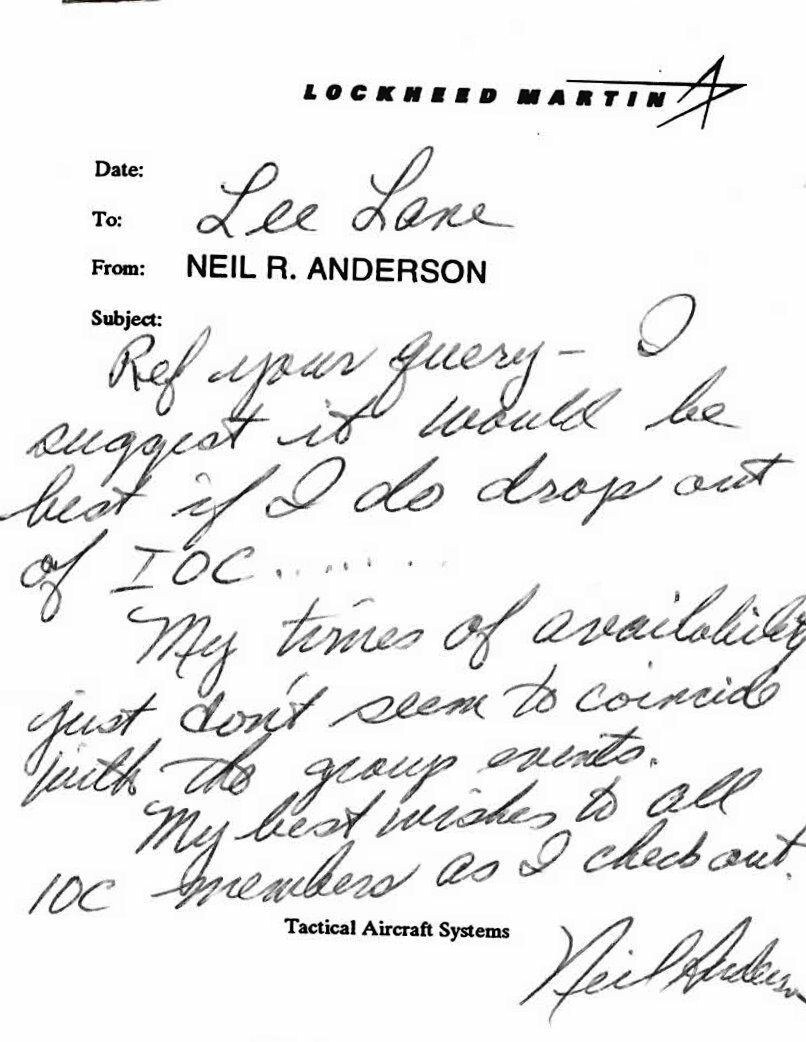 LOCKHEED MARTIN
Date:
To: Lee Lane
From: NEIL R. ANDERSON
Subject:
Ref your query - I
suggest it would be
best if I do drop out
of IOC..........
My times of availability
just don't seem to coincide
with the group events.
My best wishes to all
IOC members as I check out.
Tactical Aircraft Systems
Neil Anderson